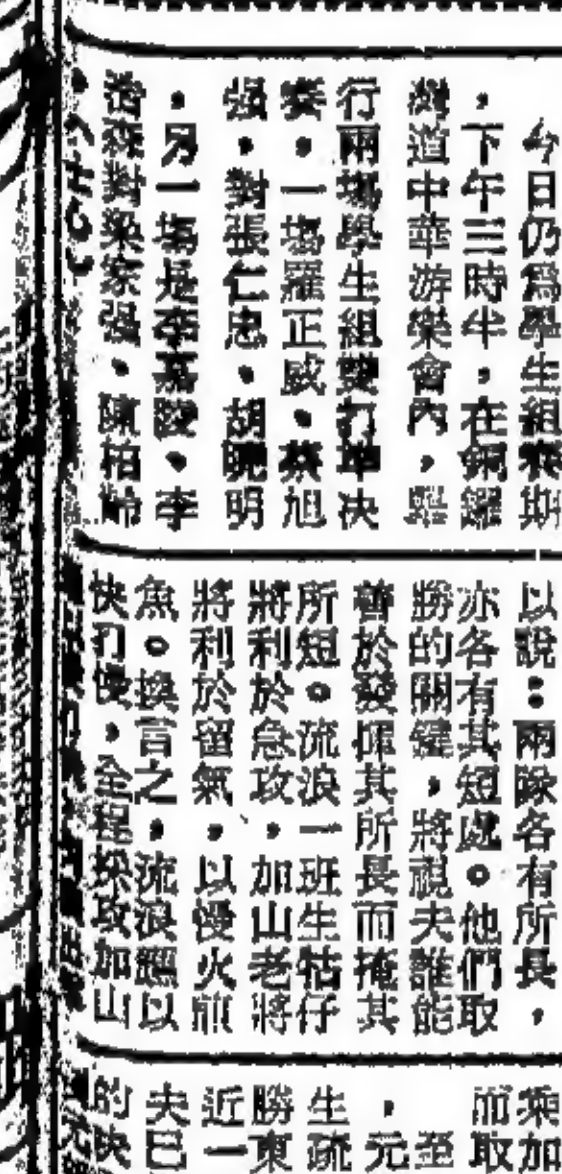 今日仍爲學生組賽期
，下午三時半，在銅鑼
灣道中華游樂會內，舉
行兩場學生組雙打準决
賽，一場羅正威、蔡旭
强，對張仁忠、胡曉明
，另一場是李嘉陵、李
森對梁家强、陳柏齡
以說：兩隊各有所長，
亦各有其短處。他們取
勝的關鍵，將視夫誰能
善於發揮其所長而掩其
所短。流浪一班生牯仔
將利於急攻，加山老將
將利於留氣，以慢火煎
魚。換言之，流浪應以
快打慢，全程採攻加山
乘加
而取
至
，元
生疏
勝東
近一
夫已
的快